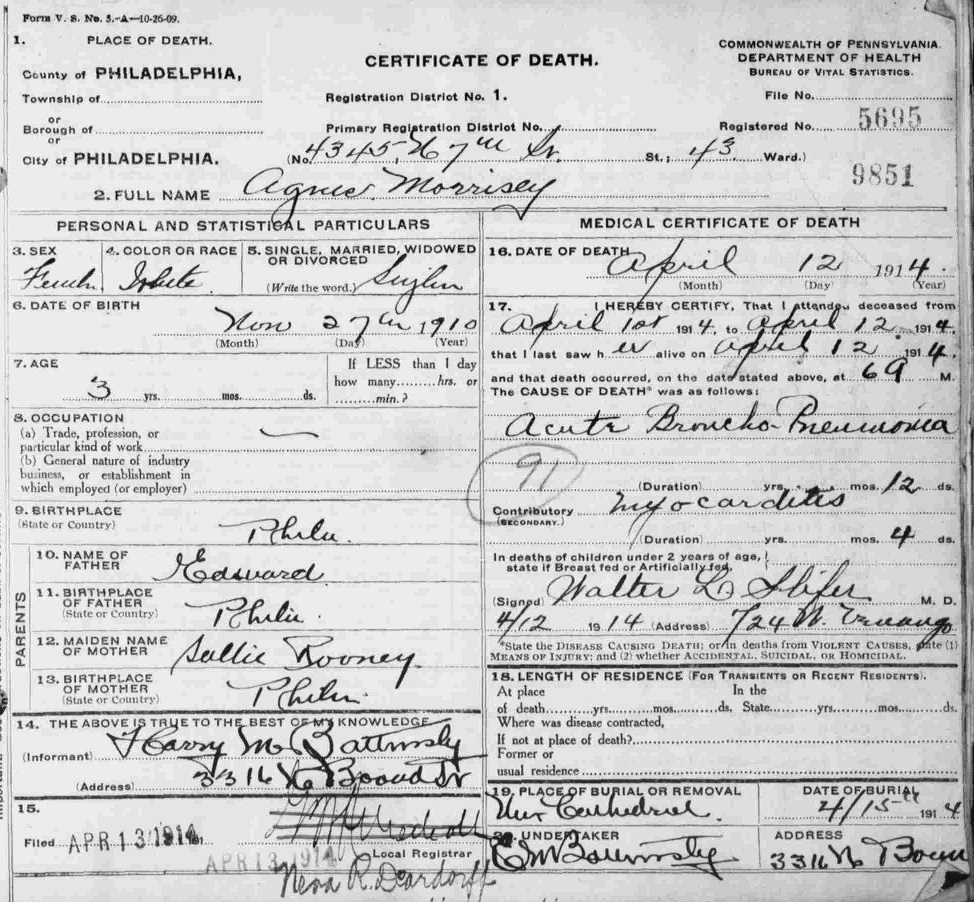 Form V. S. No. 5.-A-10-26-09.
1. PLACE OF DEATH.
County of PHILADELPHIA,
Township of
or
Borough of
or
City of PHILADELPHIA.
CERTIFICATE OF DEATH.
Registration District No. 1.
Primary Registration District No.
(No. 4345 N 7th St. St.; 43 Ward.)
COMMONWEALTH OF PENNSYLVANIA.
DEPARTMENT OF HEALTH
BUREAU OF VITAL STATISTICS.
File No.
Registered No. 5695
9851
2. FULL NAME Agnes Morrisey
PERSONAL AND STATISTICAL PARTICULARS
3. SEX
Female
4. COLOR OR RACE
White
5. SINGLE, MARRIED, WIDOWED
OR DIVORCED
(Write the word.) Single
6. DATE OF BIRTH
Nov 27th 1910
(Month) (Day) (Year)
7. AGE
3 yrs. mos. ds.
If LESS than 1 day
how many hrs. or
min.?
8. OCCUPATION
(a) Trade, profession, or
particular kind of work
(b) General nature of industry
business, or establishment in
which employed (or employer)
9. BIRTHPLACE
(State or Country)
Phila.
PARENTS
10. NAME OF
FATHER
Edward
11. BIRTHPLACE
OF FATHER
(State or Country)
Phila.
12. MAIDEN NAME
OF MOTHER
Sallie Rooney.
13. BIRTHPLACE
OF MOTHER
(State or Country)
Phila.
14. THE ABOVE IS TRUE TO THE BEST OF MY KNOWLEDGE
(Informant) Harry M
(Address) 3316 N Broad St
15.
Filed APR 13 1914 191
APR 13 1914
Local Registrar
Neva R. Deardorff
MEDICAL CERTIFICATE OF DEATH
16. DATE OF DEATH
April 12 1914.
(Month) (Day) (Year)
17. I HEREBY CERTIFY, That I attended deceased from
April 1st 1914, to April 12 1914
that I last saw her alive on April 12 1914.
and that death occurred, on the date stated above, at 69 M.
The CAUSE OF DEATH* was as follows:
Acute Broncho-Pneumonia
91
(Duration) yrs. mos. 12 ds.
Contributory Myocarditis
(SECONDARY.)
(Duration) yrs. mos. 4 ds.
In deaths of children under 2 years of age,
state if Breast fed or Artificially fed,
(Signed) Walter L. M. D.
4/12 1914 (Address) 724 W. Venango
*State the DISEASE CAUSING DEATH; or in deaths from VIOLENT CAUSES, state (1)
MEANS OF INJURY; and (2) whether ACCIDENTAL, SUICIDAL, OR HOMICIDAL.
18. LENGTH OF RESIDENCE (FOR TRANSIENTS OR RECENT RESIDENTS).
At place In the
of death yrs. mos. ds. State yrs. mos. ds.
Where was disease contracted,
If not at place of death?
Former or
usual residence
19. PLACE OF BURIAL OR REMOVAL
New Cathedral.
DATE OF BURIAL
4/15th 1914
20. UNDERTAKER
ADDRESS
3316 N Broad